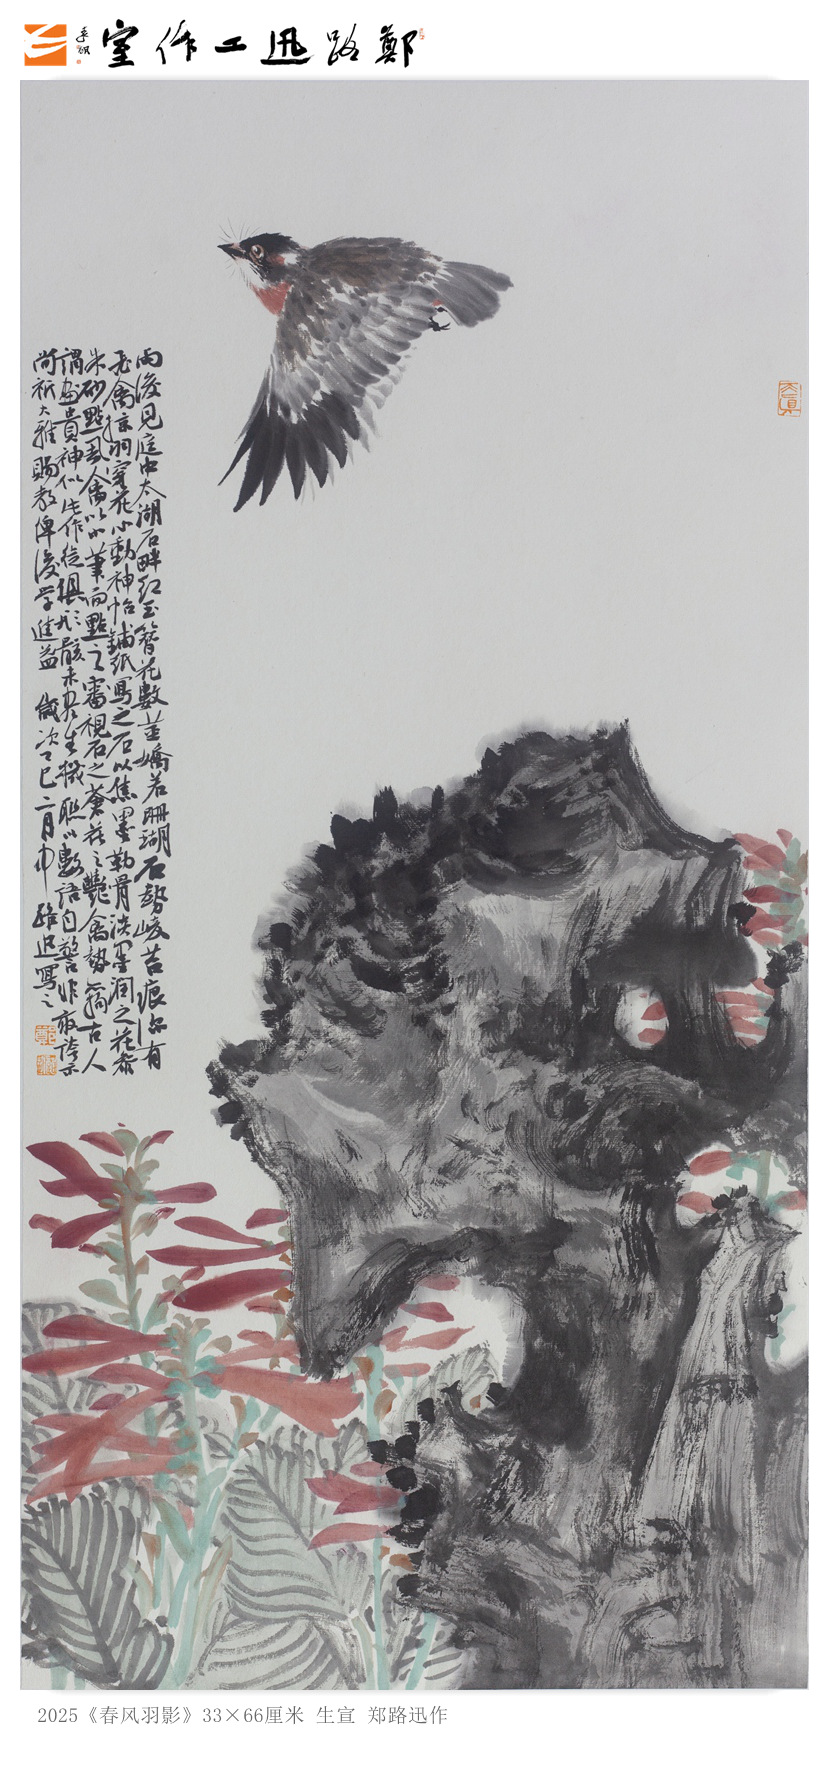 鄭路迅工作室
雨後見庭中太湖石畔紅玉簪花數莖嬌若珊瑚石勢峻苔痕泌有
飛禽掠羽穿花心動神怡鋪紙寫之石以焦墨勒骨淡墨潤之花希
朱砂點風禽以小筆而點之審視石之蒼花之艷禽勢籍古人
謂畫貴神似此作雖具形骸未盡生機聊以數語自警非敢誇示
尚祈大雅賜教俾後學進益 歲次乙巳二月中 路迅寫之
2025《春风羽影》33×66厘米 生宣 郑路迅作